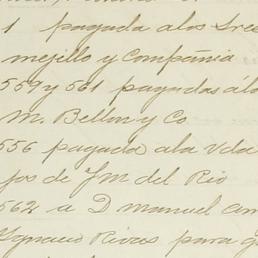 1 pagada a los Sres
mejillo y Compañia
559 y 561 pagadas á lo
M. Bellon y Co
556 pagada a la Vda
jos de J M del Rio
562 a D manuel am
Ygnacio Rivas para g